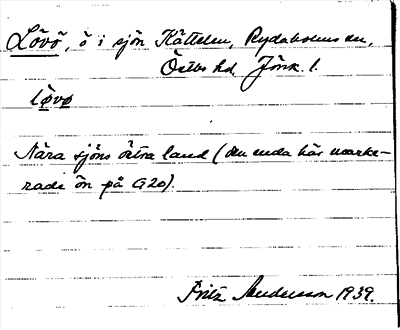 Lövö, ö i sjön Kättelen, Rydaholms sn,
Östbo hd. Jönk. l.
lø̀vø
Nära sjöns östra land (den enda här marke-
rade ön på G20).
Fritz Anderson 1939.